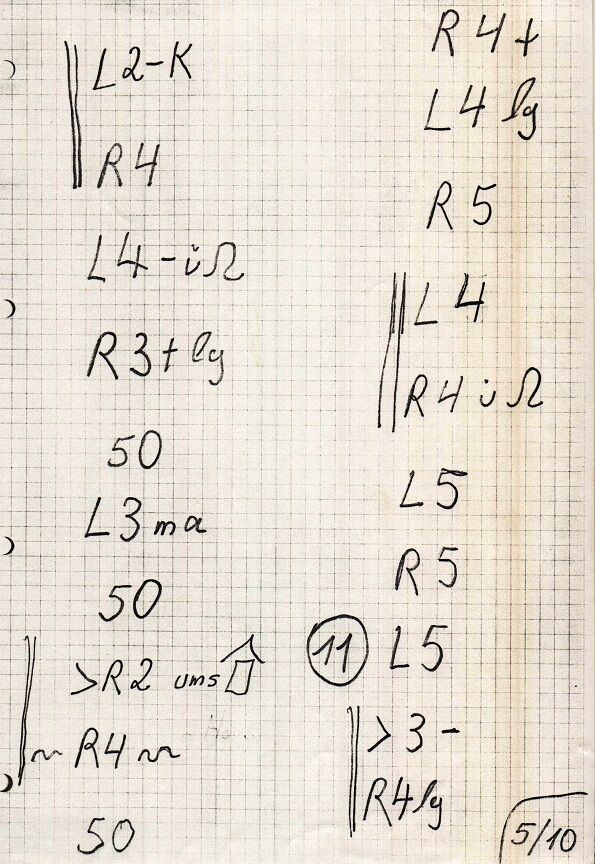 L2-K
R4
L4-üΩ
R3+ lg
50
L3 ma
50
>R2 ums
~ R4 ~
50
R4+
L4 lg
R5
L4
R4 üΩ
L5
R5
11 L5
>3-
R4lg
5/10